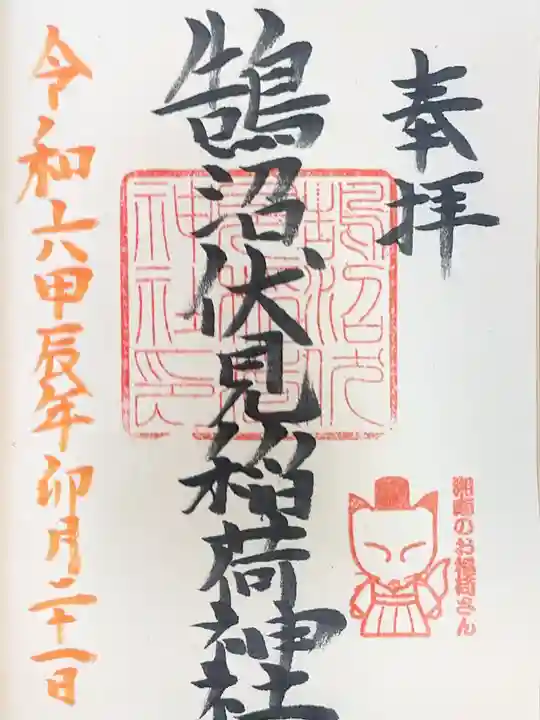 奉拝
湘南のお稲荷さん
鵠沼伏見稲荷神社
鵠沼伏見稲荷神社印
令和六甲辰年卯月二十一日